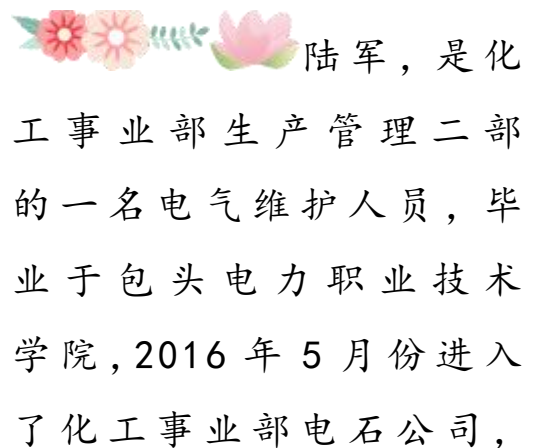 陆军，是化
工事业部生产管理二部
的一名电气维护人员，毕
业于包头电力职业技术
学院,2016 年 5 月份进入
了化工事业部电石公司，